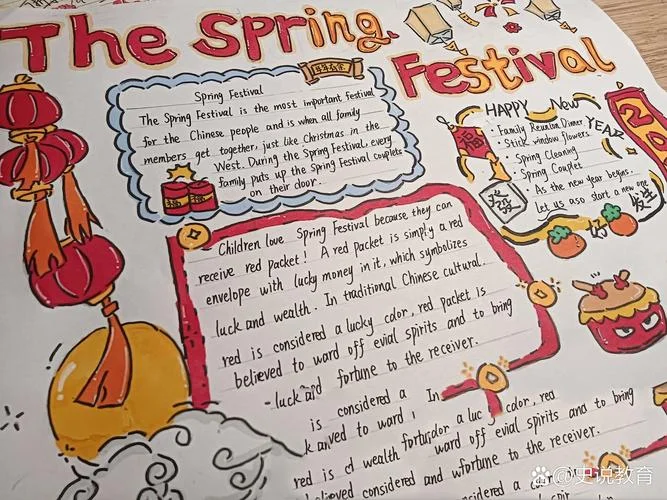 The Spring Festival
年年有余
Spring Festival
The Spring Festival is the most important festival
for the Chinese people and is when all family
members get together, just like Christmas in the
West. During the Spring Festival, every
family puts up the Spring Festival couplets
on their door.
福
福
HAPPY New YEAR
• Family Reunion Dinner
• Stick window flowers
• Spring Cleaning
• Spring Couplet
• As the new year begins.
Let us aso start a new one
福
20
发生
好
Children love Spring Festival because they can
receive red packet! A red packet is simply a red
envelope with lucky money in it, which symbolizes
luck and wealth. In traditional Chinese cultural.
red is considered a lucky color, red packet is
believed to ward off evial spirits and to bring
luck and fortune to the receiver.
is considered a In
k anved to ward
red is ed wealth forturdor a luc color, rea
ward off evial spirits and to bring
believed considered and wfortune to the receiver.
@史说教育